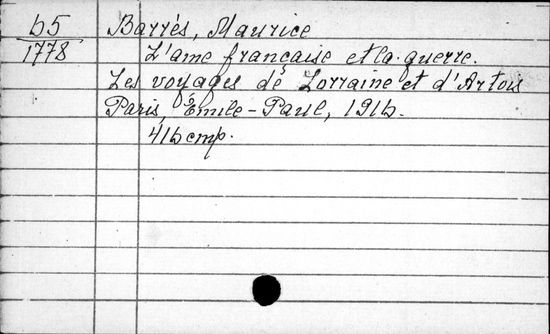 b5
1778
Barrès, Maurice
L'ame française et la guerre.
Les voyages de Lorraine et d'Artois
Paris, Émile-Paul, 1916.
416 стр.